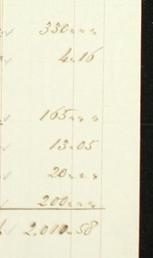 330 " "
4.16
165 " "
13.05
20 " "
200 " "
2,010.58